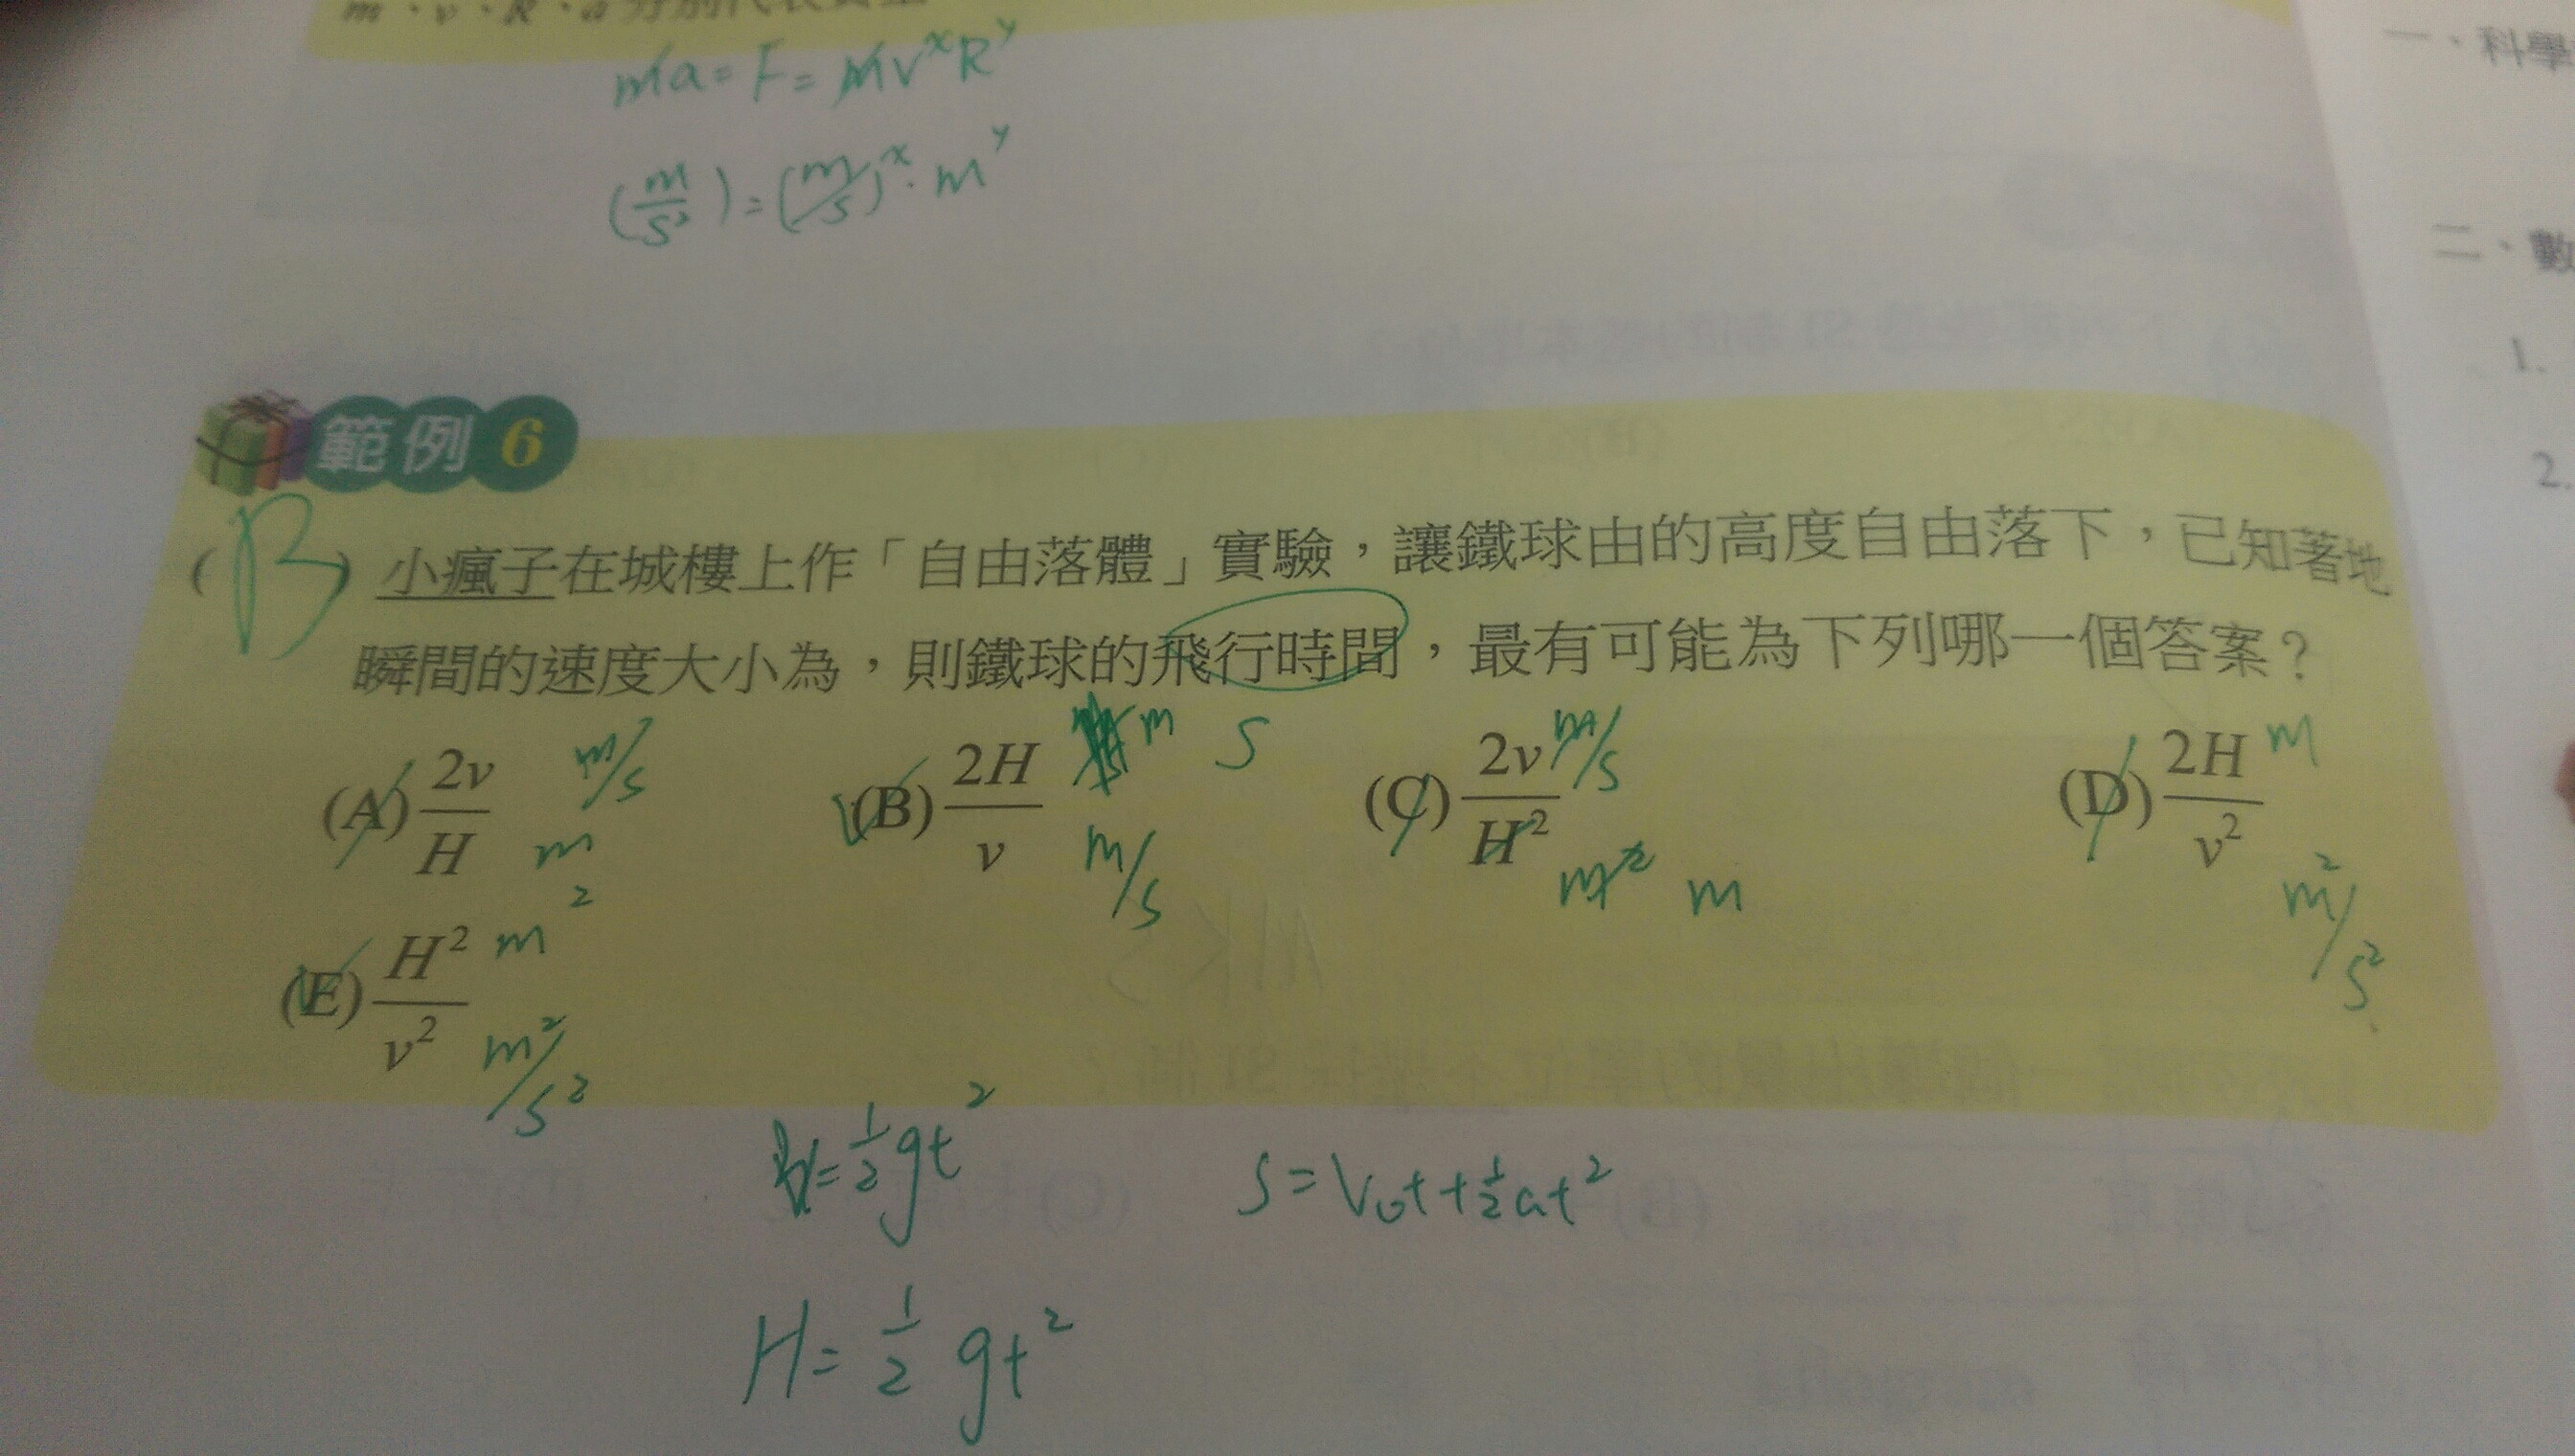 m、v、R、a分別代表質量
ma = F = mv^x R^y
(m/s²) = (m/s)^x · m^y
一、科學
二、數
1.
2.
範例 6
(B) 小瘋子在城樓上作「自由落體」實驗，讓鐵球由的高度自由落下，已知著地
瞬間的速度大小為，則鐵球的飛行時間，最有可能為下列哪一個答案？
(A) 2v/H m/s m (B) 2H/v m s m/s (C) 2v/H² m/s m² m (D) 2H/v² m m²/s²
(E) H²/v² m² m²/s²
h = ½gt² S = V₀t + ½at²
H = ½ gt²